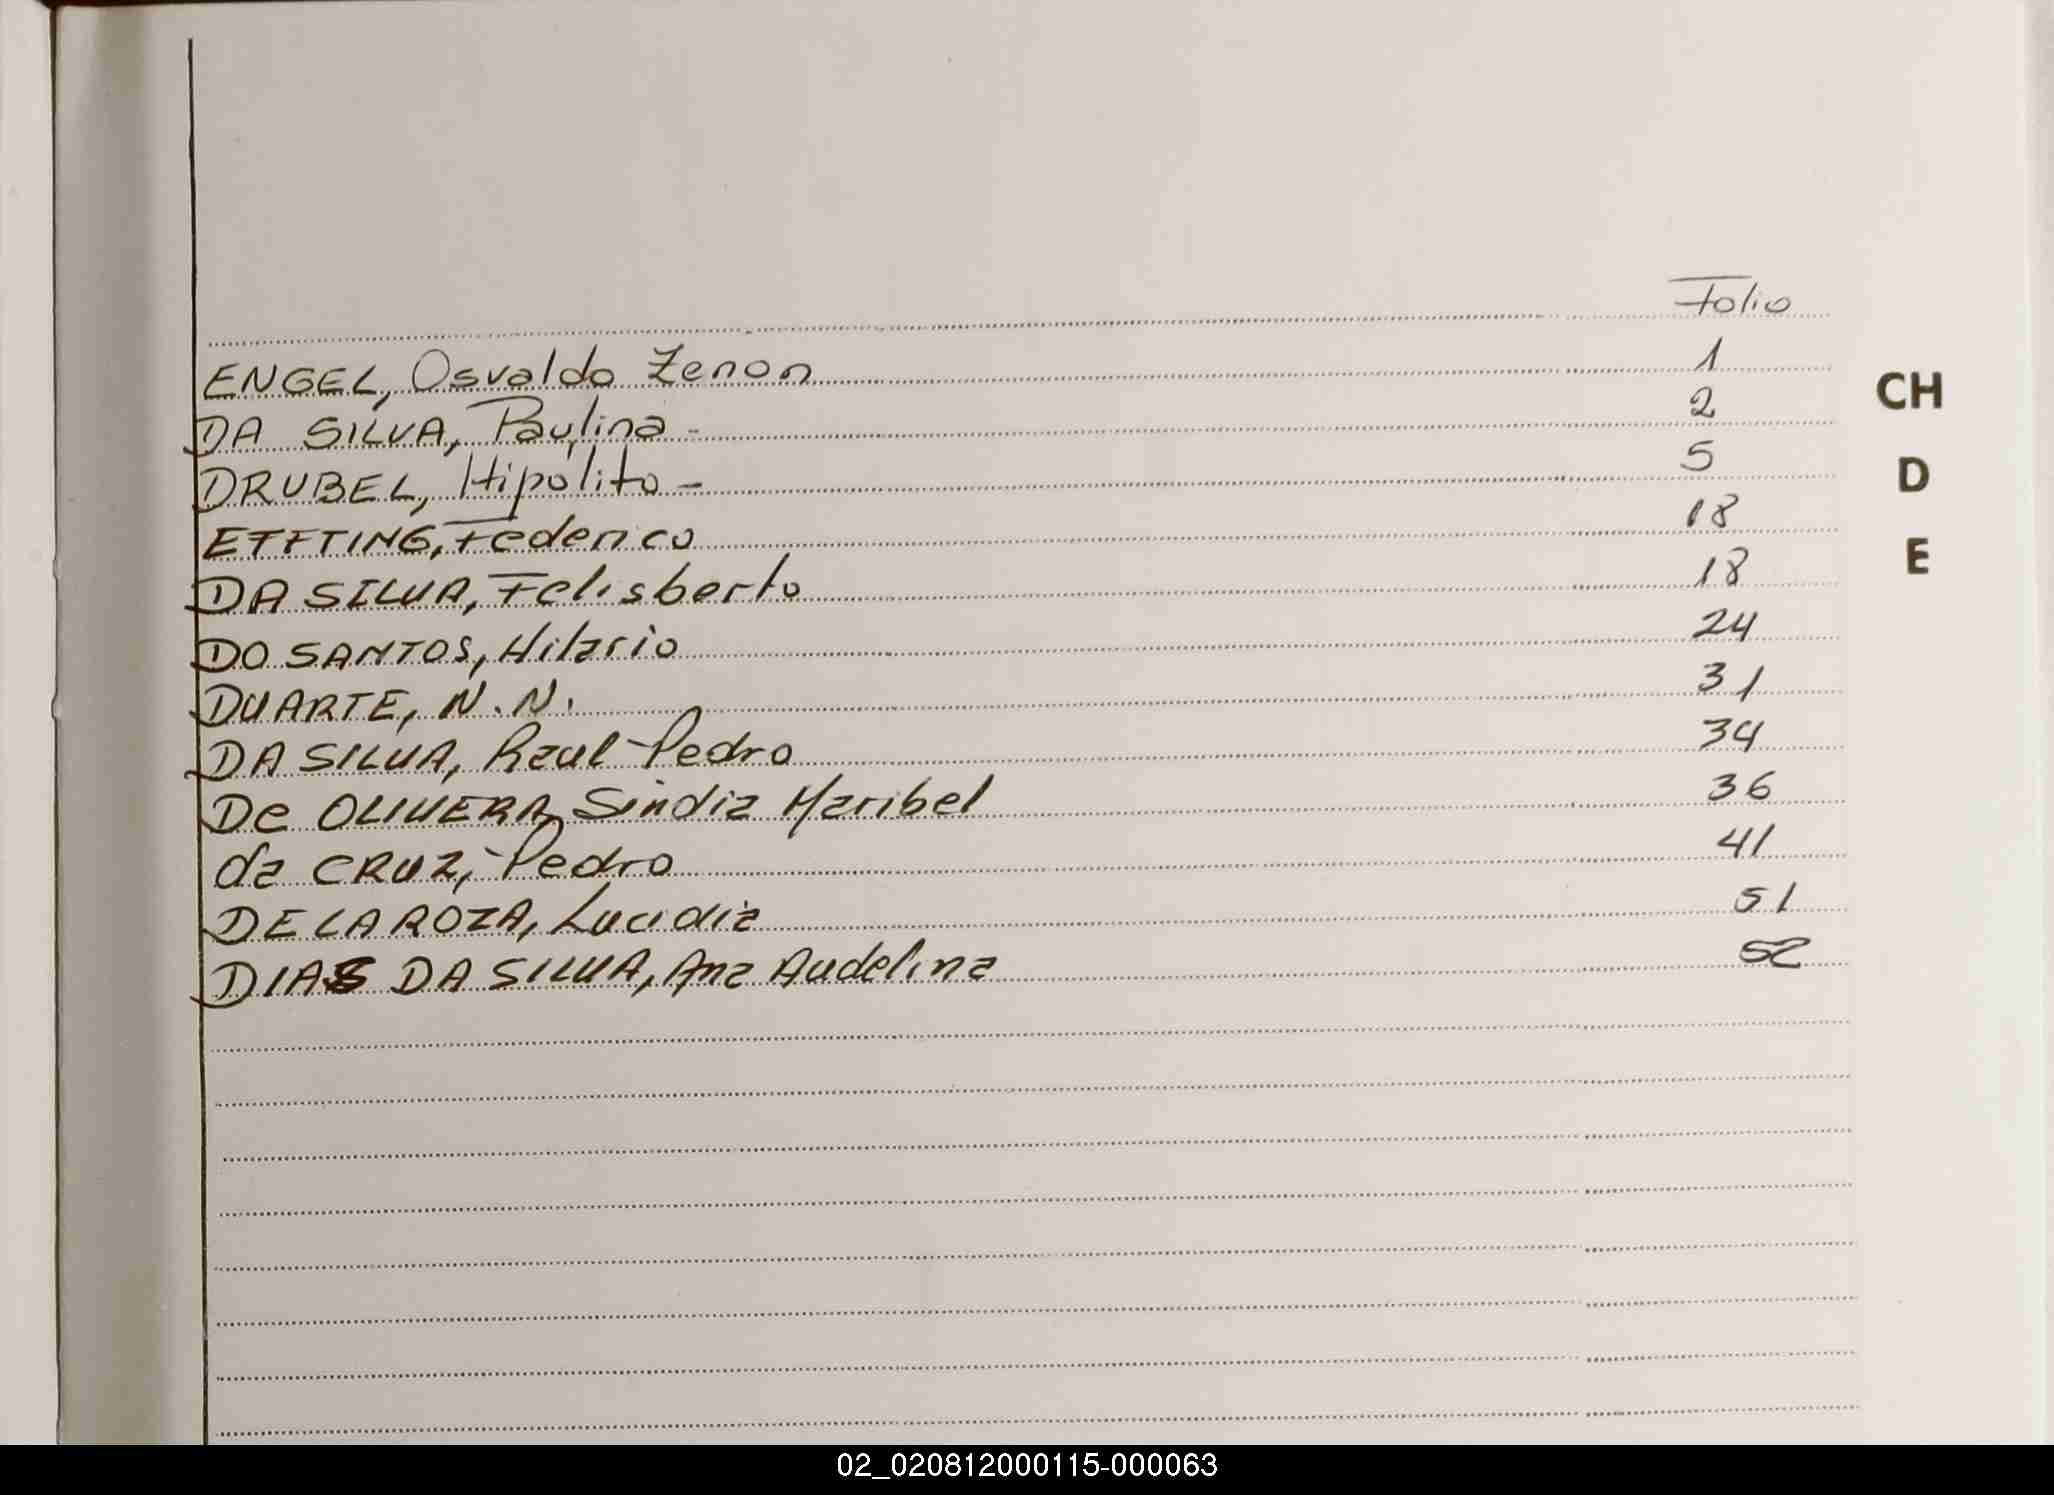 Folio
ENGEL, Osvaldo Zenon 1
DA SILVA, Paulina - 2
DRUBEL, Hipólito - 5
ETFTING, Federico 18
DA SILVA, Felisberto 18
DO SANTOS, Hilario 24
DUARTE, N.N. 31
DA SILVA, Raul Pedro 34
De OLIVERA, Sindia Maribel 36
da CRUZ, Pedro 41
DE LA ROZA, Lucidia 51
DIAS DA SILVA, Ana Audelina 52
CH
D
E
02_020812000115-000063